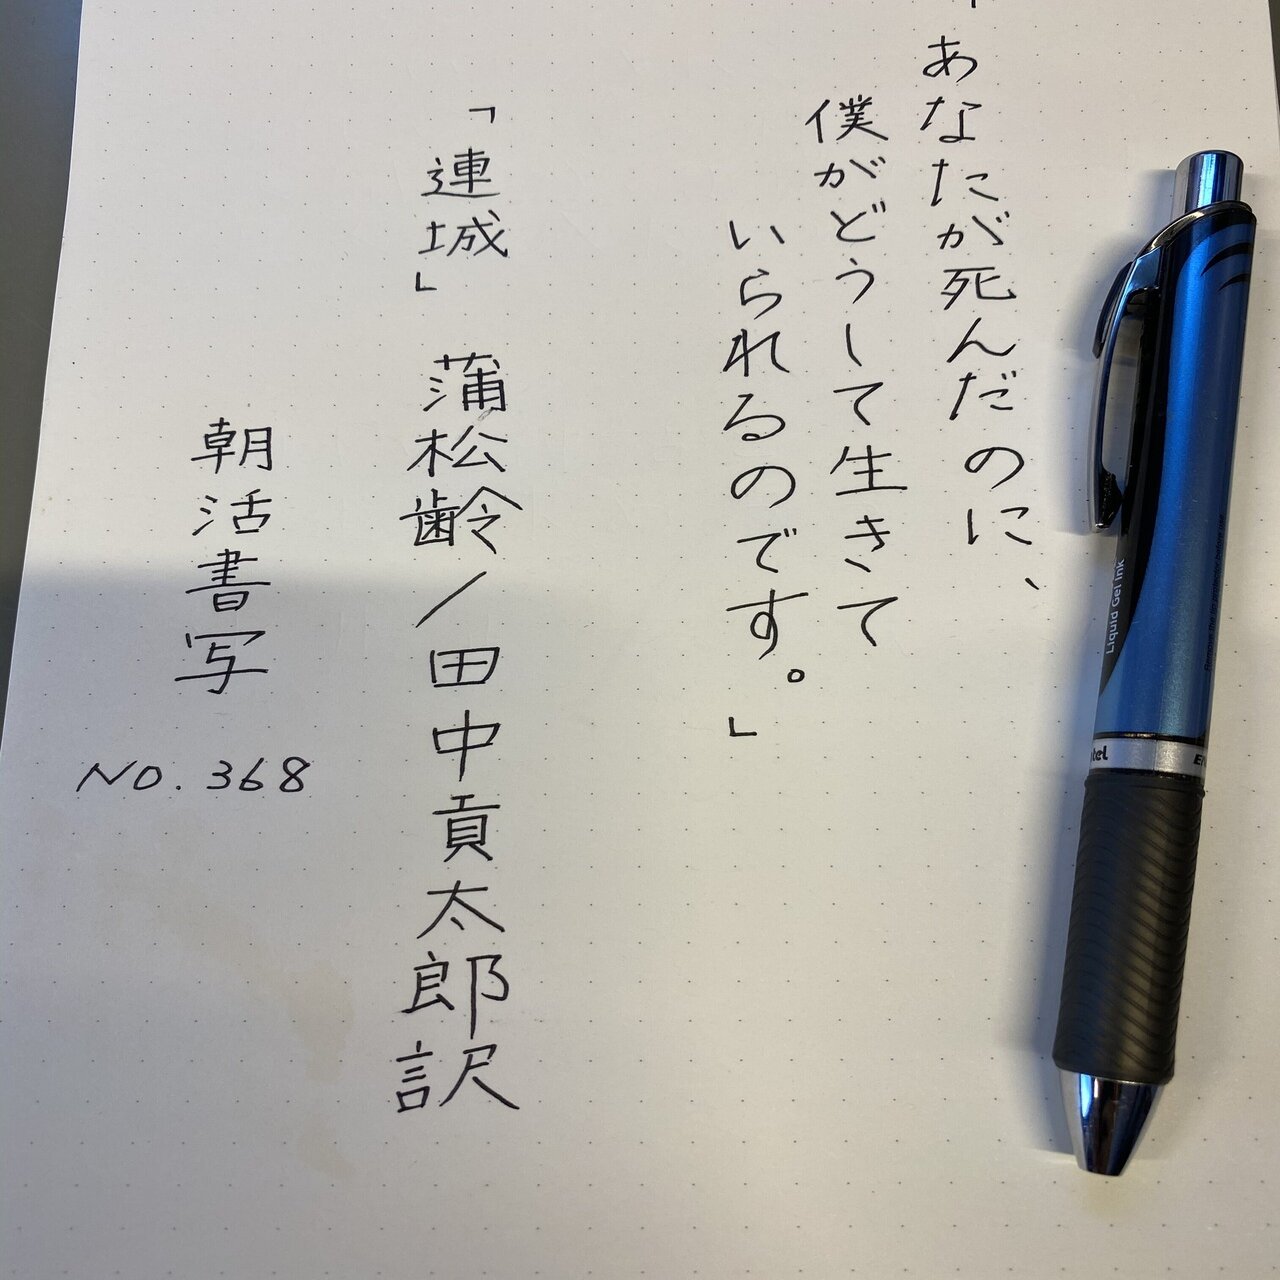 「あなたが死んだのに、
僕がどうして生きて
いられるのです。」
「連城」 蒲松齢/田中貢太郎訳
朝活書写
NO.368
Liquid Gel Ink